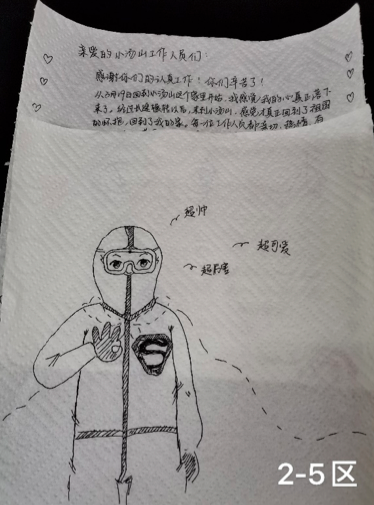 亲爱的小汤山工作人员们：
感谢你们的认真工作！你们辛苦了！
从3月19日回到小汤山这个家里开始，我感觉我的心真正落下
来了，经过长途辗转以后，来到小汤山，感觉才真正回到了祖国
的怀抱，回到了我的家。每一位工作人员都亲切、热情、有
超帅
超可爱
超厉害
2-5区